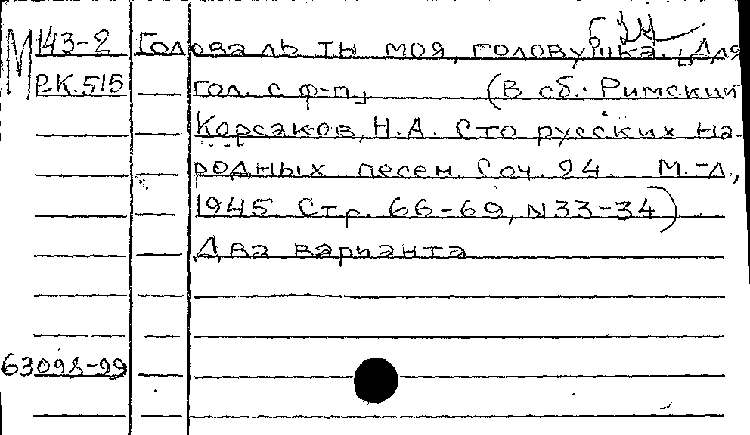 М 143-2 Голова ль ты моя, головушка. [Для
Р.К.515 гол. с ф-п] (В сб.: Римский
Корсаков, Н.А. Сто русских на-
родных песен. Соч. 24. М.-Л.,
1945. Стр. 66-69, N33-34).
Два варианта
63098-99